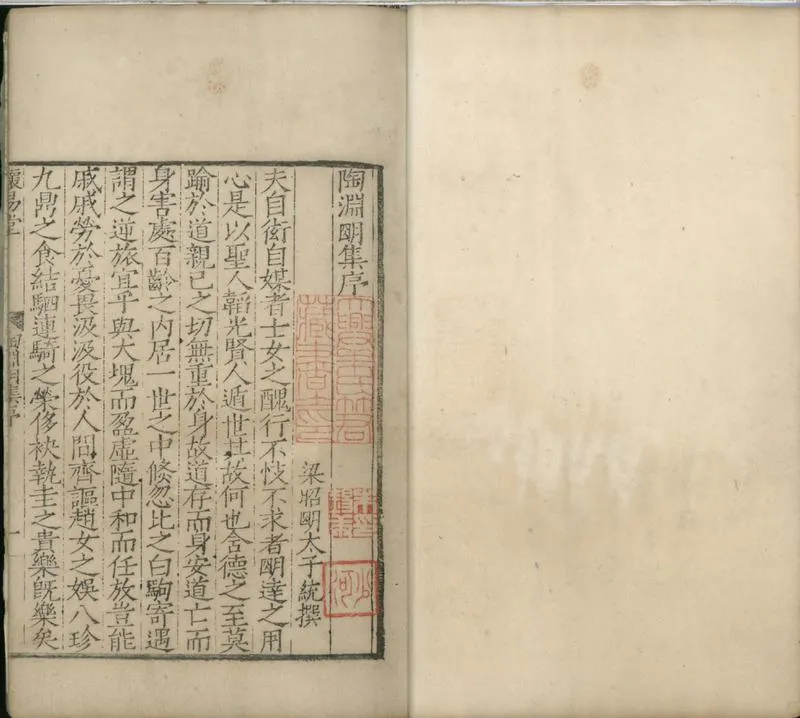 陶淵明集序
梁昭明太子統撰
夫自衒自媒者士女之醜行不忮不求者明達之用
心是以聖人韜光賢人遁世其故何也含德之至莫
踰於道親己之切無重於身故道存而身安道亡而
身害處百齡之內居一世之中倏忽比之白駒寄遇
謂之逆旅宜乎與大塊而盈虛隨中和而任放豈能
戚戚勞於憂畏汲汲役於人間齊謳趙女之娛八珍
九鼎之食結駟連騎之榮侈袂執圭之貴樂旣樂矣
陶淵明集序
一